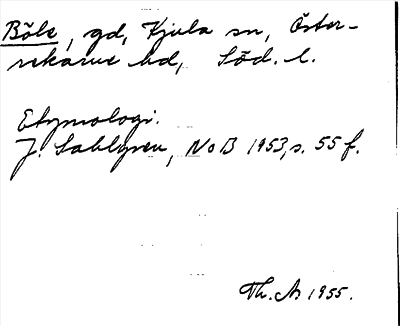 Böle, gd, Kjula sn, Öster-
rekarne hd, Söd. l.
Etymologi.
J. Sahlgren, NoB 1953, s. 55 f.
Th. A 1955.